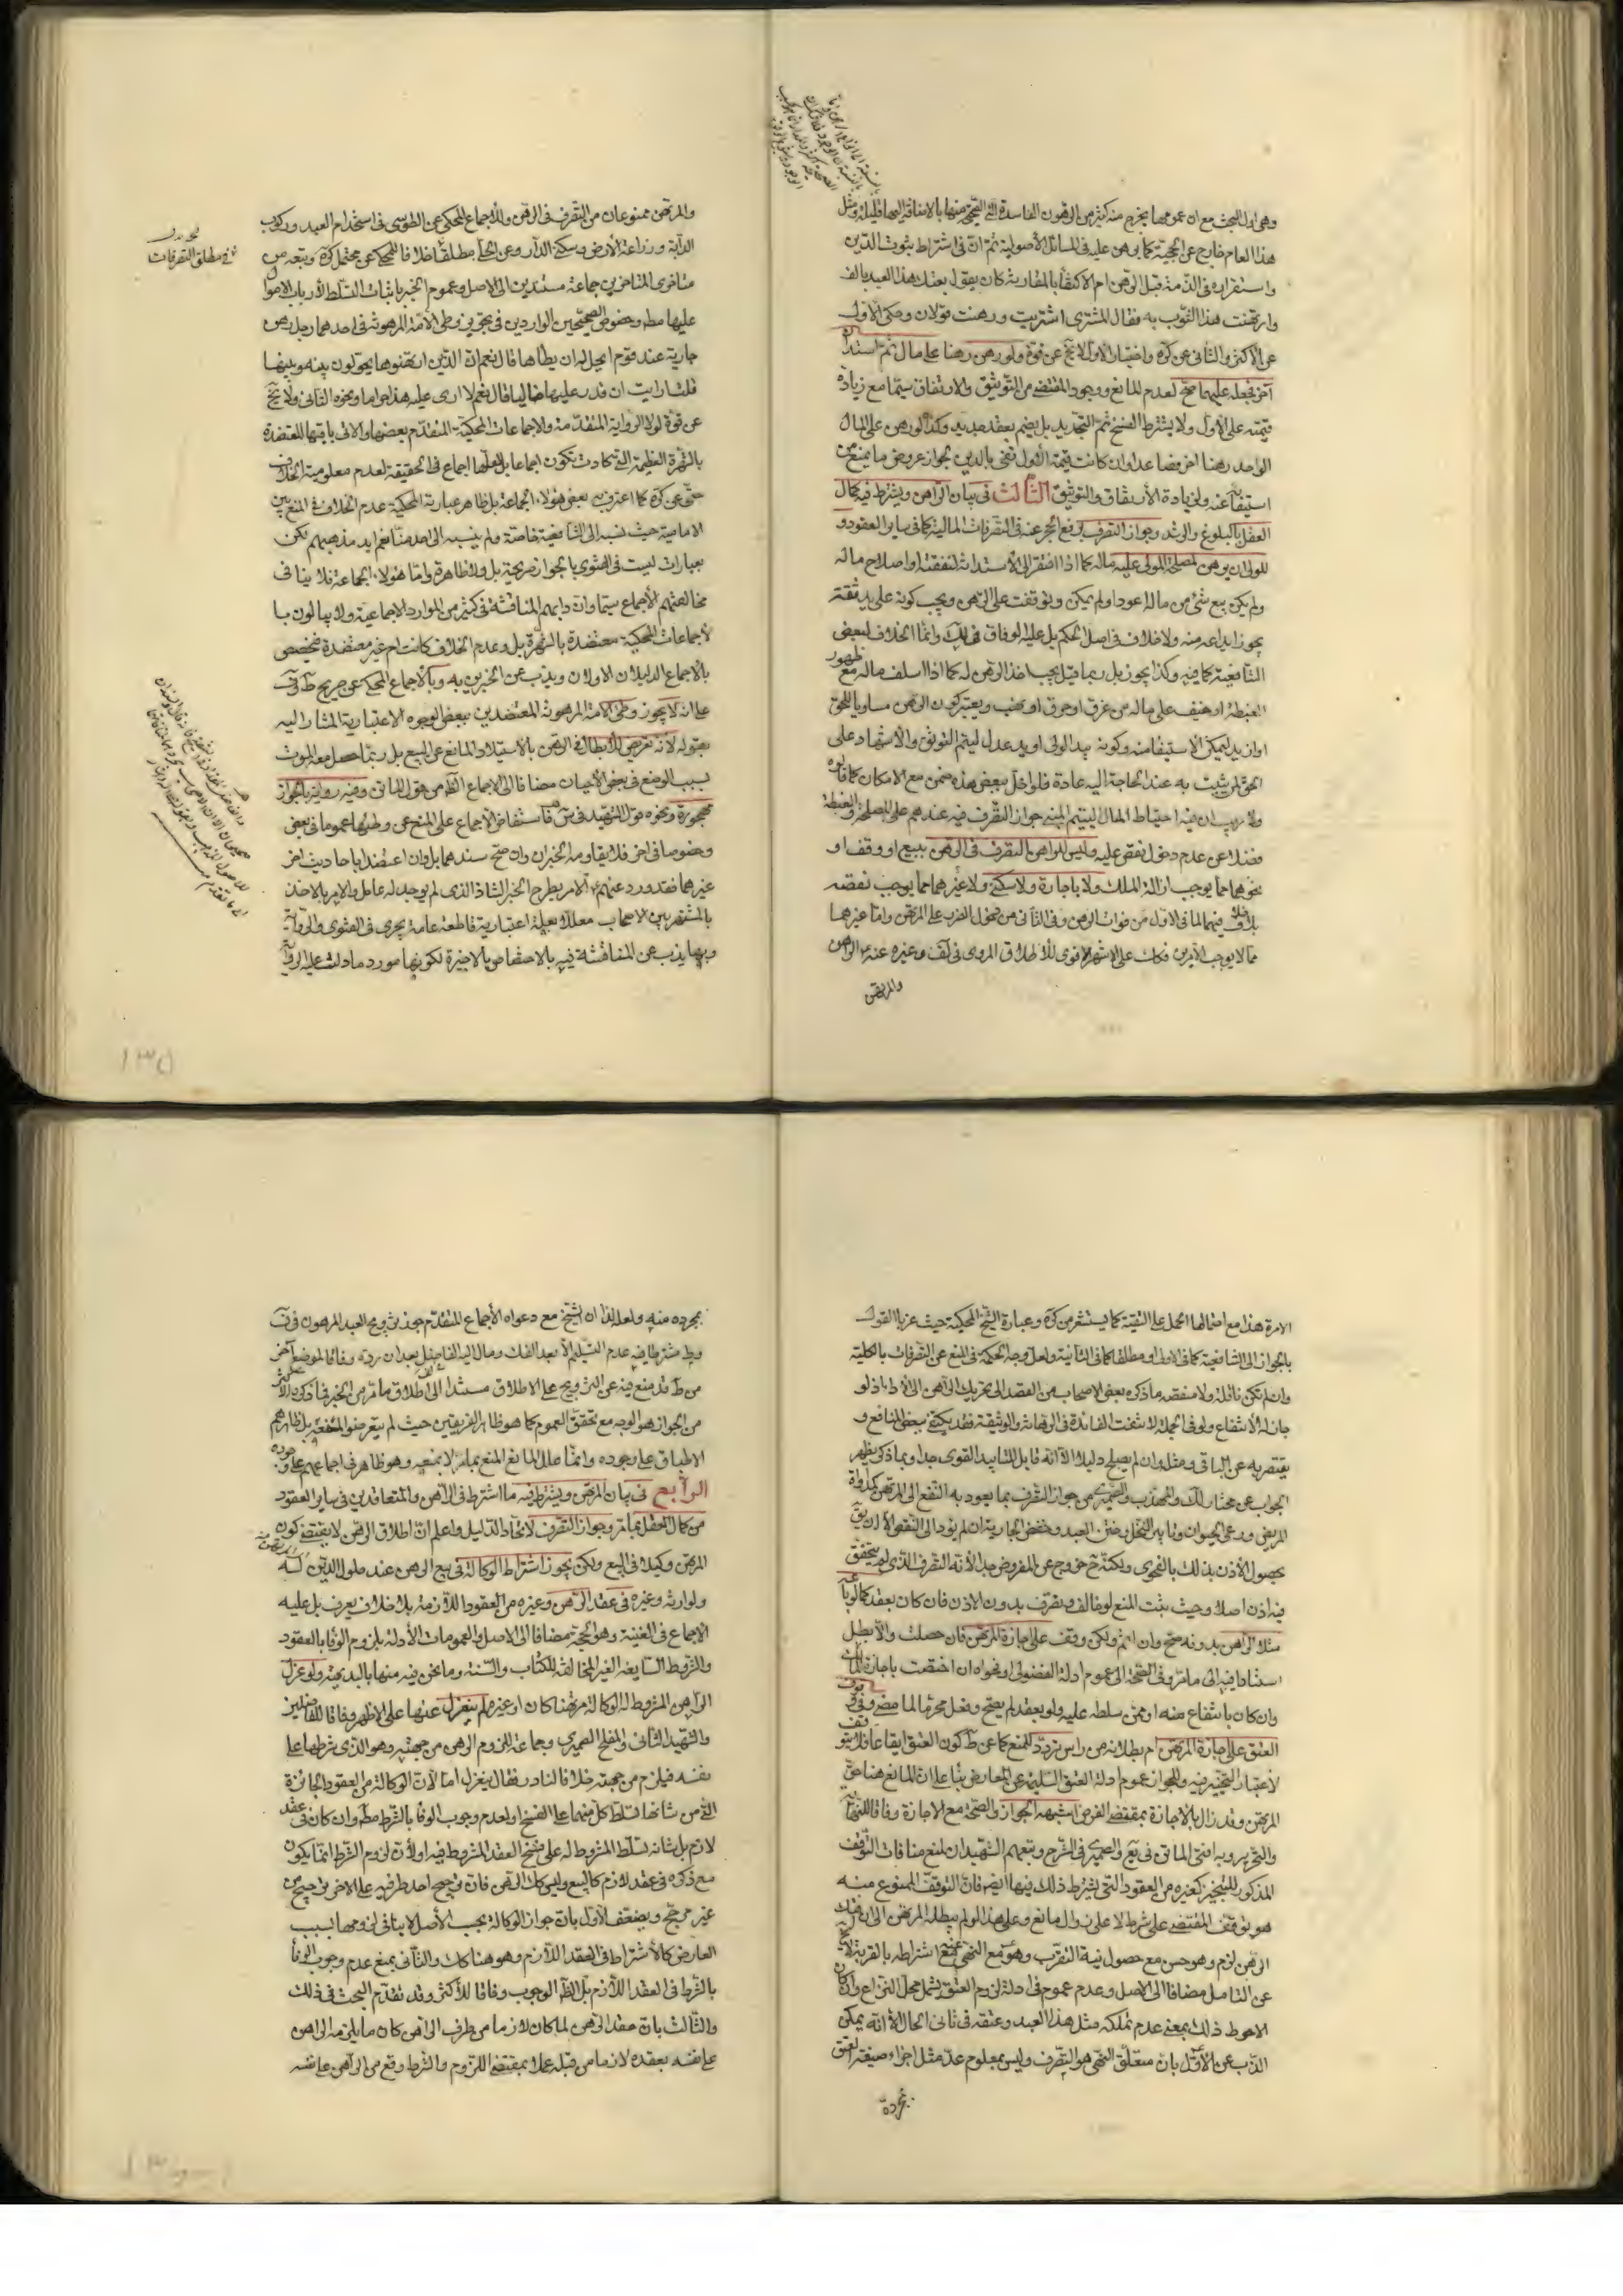 وهى اول البحث مع ان عمومها يخرج منه كثير من الرهون الفاسدة التى الصحيح منها بالاضافة اليها قليلة ومثل
هذا العام خارج عن الحجية كما برهن عليه فى المسائل الأصولية ثم ان فى اشتراط ثبوت الدين
واستقراره فى الذمة قبل الرهن ام الاكتفا بالمقارنة كان يقول بعتك هذا العبد بالف
وارتهنت هذا الثوب به فقال المشترى اشتريت ورهنت قولان وحكى الاول
عن الاكثر والثانى عن كره واختيار الاول لا يخ عن قوة ولو رهن رهنا على مال ثم استدا
آخر فجعله عليهما صح لعدم المانع ووجود المقتضى من التوثيق والارتفاق سيما مع زيادة
قيمته على الأول ولا يشترط الفسخ ثم التجديد بل يضم بعقد جديد وكذا لو رهن على المال
الواحد رهنا اخر فصاعدا وان كانت قيمة الأول تفى بالدين لجواز عروض ما يمنع من
استيفائه عنه ولزيادة الأرتفاق والتوثيق الثالث فى بيان الراهن ويشترط فيه كمال
العقل بالبلوغ والرشد وجواز التصرف برفع الحجر عنه فى التصرفات المالية كما فى ساير العقود و
للولى ان يرهن لمصلحة المولى عليه ماله كما اذا افتقر الى الاستدانة لنفقته او اصلاح ماله
ولم يكن بيع شئ من ماله اعود او لم يمكن وتوقفت على الرهن ويجب كونه على يد ثقة
يجوز ايداعه منه ولا خلاف فى اصل الحكم بل عليه الوفاق فى لك وانما الخلاف لبعض
الشافعية كما فيه وكذا يجوز بل ربما قيل يجب اخذ الرهن له كما اذا اسلف ماله مع ظهور
الغبطة او خيف على ماله من غرق او حرق او نهب ويعتبر كون الرهن مساويا للحق
او ازيد ليمكن الاستيفا منه وكونه بيد الولى او يد عدل ليتم التوثق والاشهاد على
الحق لمن يثبت به عند الحاجة اليه عادة فلو اخل ببعض هذه ضمن مع الامكان كما قالوه
ولا ريب ان فيه احتياط المال اليتيم المبنى جواز التصرف فيه عندهم على المصلحة والغبطة
فضلا عن عدم دخول نقص عليه وليس للراهن التصرف فى الرهن ببيع او وقف او
نحوهما مما يوجب ازالة الملك ولا باجارة ولا سكنى ولا غيرهما مما يوجب نقصه
بلا خلاف فيهما لما فى الاول من فوات الرهن وفى الثانى من دخول الضرر على المرتهن واما غيرهما
مما لا يوجب الأمرين فكك على الاشهر الاقوى للأطلاق المروى فى لف وغيره عنه ع الراهن
والمرتهن
والمرتهن ممنوعان من التصرف فى الرهن والاجماع المحكى عن الطوسى فى استخدام العبد وركوب
الدابة وزراعة الأرض وسكنى الدار وعن الحلى مطلقا خلافا للمحكى عن محتمل كره وتبعه من
متاخرى المتاخرين جماعة مستندين الى الاصل وعموم الخبر باثبات التسلط لأرباب الاموال
عليها مط وخصوص الصحيحين الواردين فى تجويز وطى الأمة المرهونة فى احدهما رجل رهن
جارية عند قوم ايحل له ان يطاها قال نعم ان الذين ارتهنوها يحولون بينه وبينها
قلت ارايت ان قدر عليها خاليا قال نعم لا ارى عليه هذا حراما ونحوه الثانى ولا يخ
عن قوة لولا الرواية المتقدمة والاجماعات المحكية المتقدم بعضها والاتى باقيها المعتضدة
بالشهرة العظيمة التى كادت تكون اجماعا بل لعلها اجماع فى الحقيقة لعدم معلومية الخلاف
حتى عن كره كما اعترف به بعض هؤلاء الجماعة بل ظاهر عبارته المحكية عدم الخلاف فى المنع بين
الامامية حيث نسبه الى الشافعية خاصة ولم ينسبه الى احد منا نعم ايد مذهبهم لكن
بعبارات ليست فى الفتوى بالجواز صريحة بل ولا ظاهرة واما هؤلاء الجماعة فلا ينافى
مخالفتهم الاجماع سيما وان دابهم المناقشة فى كثير من الموارد الاجماعية ولا يبالون با
لأجماعات المحكية معتضدة بالشهرة بل وعدم الخلاف كانت ام غير معتضدة فيخصص
بالأجماع الدليلان الاولان ويذب عن الخبرين به وبالأجماع المحكى عن صريح ط وفى
على انه لا يجوز وطى الامة المرهونة المعتضدين ببعض الوجوه الاعتبارية المشار اليه
بقوله لانه تعريض للأبطال فى الرهن بالاستيلاد المانع عن البيع بل ربما حصل معه الموت
بسبب الوضع فى بعض الأحيان مضافا الى الاجماع الظاهر من قول الماتن وفيه رواية بالجواز
مهجورة ونحوه قول الشهيد فى س فاستفاض الاجماع على المنع عن وطئها عموما فى بعض
وخصوصا فى اخر فلا يقاومه الخبران وان صح سندهما بل وان اعتضدا باحاديث اخر
غيرهما فقد ورد عنهم ع الامر بطرح الخبر الشاذ الذى لم يوجد له عامل والامر بالاخذ
بالمشتهر بين الاصحاب معللا بعلة اعتبارية قاطعة عامة يجرى فى الفتوى والرواية
وبها يذب عن المناقشة فيه بالاختصاص بالاخيرة لكونها مورد ما دلت عليه الرواية
فى مطلق التصرفات
الامرة هذا مع احتمالها الحمل على التقية كما يستشعر من كره وعبارة الشيخ المحكية حيث عزيا القول
بالجواز الى الشافعية كما فى الاول او مطلقا كما فى الثانية ولعل وجه الحكمة فى المنع عن التصرفات بالكلية
وان لم تكن ناقلة ولا منقصة ما ذكره بعض الاصحاب من القصد الى تحريك الراهن الى الأداء اذ لو
جاز له الأنتفاع ولو فى الجملة لانتفت الفائدة فى الرهانة والوثيقة فقد يكتفى ببعض المنافع و
يقتصر به عن الباقى ومثله وان لم يصلح دليلا الا انه قابل للتاييد القوى جدا وبما ذكر يظهر
الجواب عن مختار لك والمهذب والصيمرى من جواز التصرف بما يعود به النفع الى المرتهن كمداواة
المريض ورعى الحيوان وتابير النخل وختن العبد وخفض الجارية ان لم يود الى النقص الا ان يق
بحصول الأذن بذلك بالفحوى ولكنه ح خروج عن المفروض جدا لأنه التصرف الذى لم يتحقق
فيه اذن اصلا وحيث يثبت المنع لو خالف وتصرف بدون الاذن فان كان بعقد كما لو باعه
مثلا الراهن بدونه صح وان اثم ولكن وقف على اجازة المرتهن فان حصلت والا بطل
استنادا فيه الى ما مر وفى الصحة الى عموم ادلة الفضولى او فحواه ان اختصت باجازة المالك
وان كان بانتفاع منه او ممن سلطه عليه ولو بعقد لم يصح وفعل محرما لما مضى وفى وقوف
العتق على اجازة المرتهن ام بطلانه من راس تردد للمنع كما عن ط كون العتق ايقاعا فلا يتوقف
لأعتبار التنجيز فيه وللجواز عموم ادلة العتق السليمة عن المعارض بناء على ان المانع هنا حق
المرتهن وقد زال بالاجازة بمقتضى الفرض اشبهه الجواز والصحة مع الاجازة وفاقا للنهاية
والتحرير وبه افتى الماتن فى يع والصيمرى فى الشرح وتبعهم الشهيدان لمنع منافات التوقف
المذكور للتنجيز كغيره من العقود التى يشترط ذلك فيها ايضا فان التوقف الممنوع منه
هو توقف المقتضى على شرط لا على زوال مانع وعلى هذا لو لم يبطله المرتهن الى ان افتك
الرهن لزم وهو حسن مع حصول نية التقرب وهو مع النهى ممتنع اشتراطه بالقربة لا يخ
عن التامل مضافا الى الاصل وعدم عموم فى ادلة لزوم العتق يشمل محل النزاع وان كان
الاحوط ذلك بمعنى عدم تملكه مثل هذا العبد وعتقه فى ثانى الحال الا انه يمكن
الذب عن الأول بان متعلق النهى هو التصرف وليس بمعلوم عد مثل اجراء صيغة العتق
بمجرده
بمجرده منه ولعله لذا ان الشيخ مع دعواه الأجماع المتقدم جوز تزويج العبد المرهون فى ف
وط مشترطا فيه عدم التسليم الا بعد الفك ومال اليه الفاضل بعد ان تردد وفاقا لموضع آخر
من ط قد منع فيه عن التزويج على الاطلاق مستندا الى اطلاق ما مر من الخبر فما ذكره الأكثر
من الجواز هو الوجه مع تحقق العموم كما هو ظاهر الفريقين حيث لم يتعرضوا لمنعه بل ظاهرهم
الاطباق على وجوده وانما علل المانع المنع بما مر لا بمنعه وهو ظاهر فى اجماعهم على وجوده
الرابع فى بيان المرتهن ويشترط فيه ما اشترط فى الراهن والمتعاقدين فى ساير العقود
من كمال العقل بما مر وجواز التصرف لاتحاد الدليل واعلم ان اطلاق الرهن لا يقتضى كون
المرتهن وكيلا فى البيع ولكن يجوز اشتراط الوكالة فى بيع الرهن عند حلول الدين له
ولوارثه وغيره فى عقد الرهن وغيره من العقود اللازمة بلا خلاف يعرف بل عليه
الاجماع فى الغنية وهو الحجة مضافا الى الاصل والعمومات الأدلة بلزوم الوفا بالعقود
والشروط السايغة الغير المخالفة للكتاب والسنة وما نحن فيه منها بالبديهة ولو عزل
الراهن المشروط له الوكالة مرتهنا كان او غيره لم ينعزل عنها على الاظهر وفاقا للفاضلين
والشهيد الثانى والمفلح الصيمرى وجماعة للزوم الرهن من جهته وهو الذى شرطها على
نفسه فيلزم من جهته خلافا لنادر فقال ينعزل اما لأن الوكالة من العقود الجائزة
التى من شانها تسلط كل منهما على الفسخ او لعدم وجوب الوفا بالشرط مط وان كان فى عقد
لازم بل شانه تسلط المشروط له على فسخ العقد المشروط فيه او لأن لزوم الشرط انما يكون
مع ذكره فى عقد لازم كالبيع وليس كك الرهن فان ترجيح احد طرفيه على الاخر ترجيح من
غير مرجح ويضعف الأول بان جواز الوكالة بحسب الأصل لا ينافى لزومها بسبب
العارض كالأشتراط فى العقد اللازم وهو هنا كك والثانى بمنع عدم وجوب الوفا
بالشرط فى العقد اللازم بل الظ الوجوب وفاقا للأكثر وقد تقدم البحث فى ذلك
والثالث بان عقد الرهن لما كان لازما من طرف الراهن كان ما يلتزمه الراهن
على نفسه بعقده لازما من قبله عملا بمقتضى اللزوم والشرط وقع من الراهن على نفسه